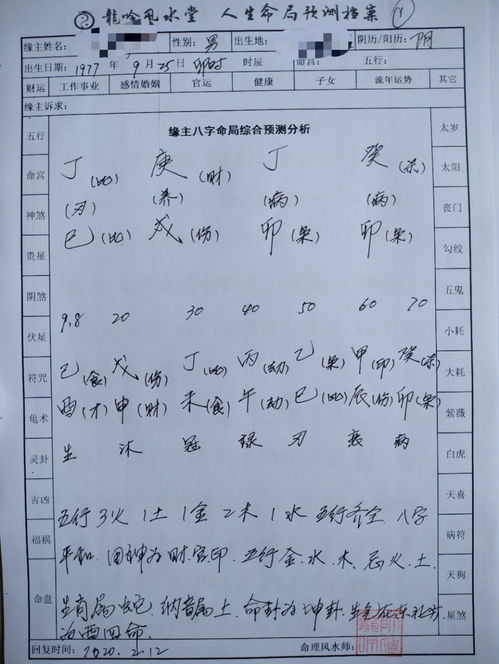 龍吟風水堂 人生命局预测档案
缘主姓名: 性别: 男 出生地: 阴历/阳历: 阴
出生日期: 1977 年 9 月 25日 卯时 时辰 命宫: 五行:
财运 工作事业 感情婚姻 官运 健康 子女 流年运势 其它
缘主诉求:
五行 缘主八字命局综合预测分析 太岁
命宫 丁(比) 庚(财) 丁 癸(杀) 太阳
神煞 (刃) (养) (病) (病) 丧门
贵星 巳(比) 戌(伤) 卯(枭) 卯(枭) 勾绞
阴煞 五鬼
伏星 9.8 20 30 40 50 60 70 小耗
符咒 己(食) 戊(伤) 丁(比) 丙(劫) 乙(枭) 甲(印) 癸(杀) 大耗
龟术 酉(才) 申(财) 未(食) 午(劫) 巳(比) 辰(伤) 卯(枭) 紫薇
灵卦 生 沐 冠 禄 刃 衰 病 白虎
吉凶 天喜
五行3火1土1金2木1水 五行齐全 八字
福祸 病符
平和 用神为财官印 五行金、水、木 忌火、土
天狗
命盘 生肖属蛇 纳音属土 命卦为坤卦 东北方 星煞
为西四命
回复时间: 2020.2.12 命理风水师: